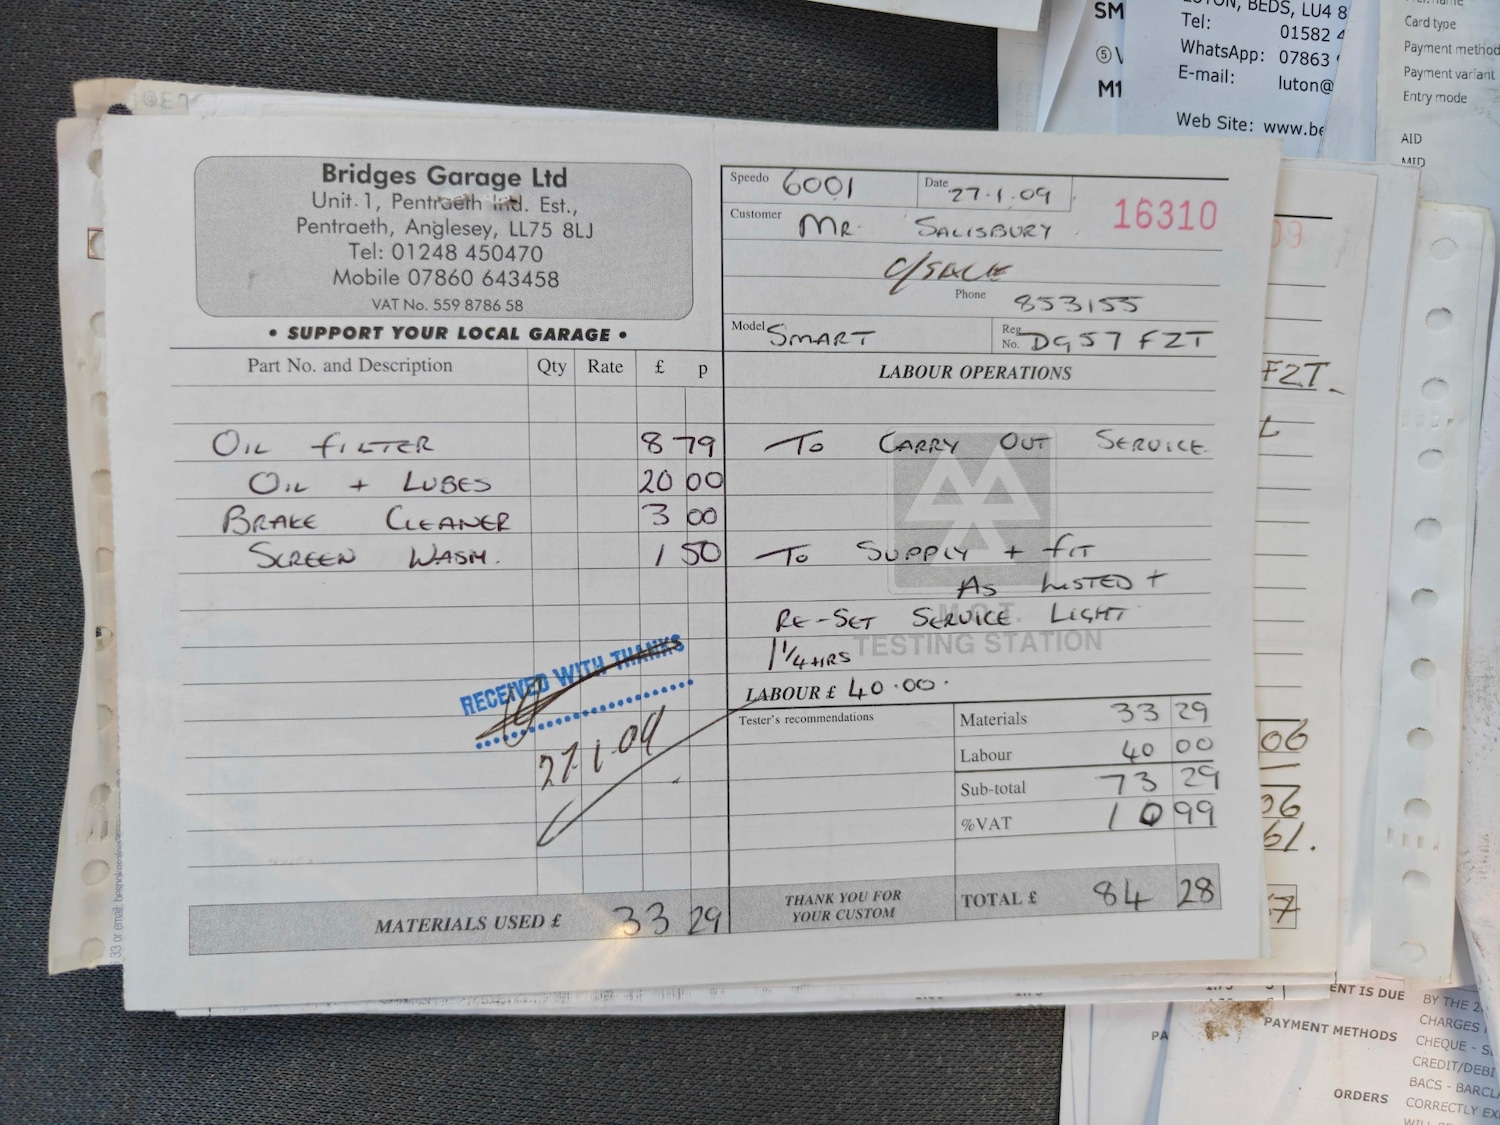 Bridges Garage Ltd
Unit 1, Pentraeth Ind. Est.,
Pentraeth, Anglesey, LL75 8LJ
Tel: 01248 450470
Mobile 07860 643458
VAT No. 559 8786 58
• SUPPORT YOUR LOCAL GARAGE •
Speedo 6001 Date 27.1.09
Customer MR. SALISBURY 16310
Phone 853155
Model SMART Reg. No. DG57 FZT
Part No. and Description Qty Rate £ p
OIL FILTER 8 79
OIL + LUBES 20 00
BRAKE CLEANER 3 00
SCREEN WASH. 1 50
RECEIVED WITH THANKS
27.1.09
MATERIALS USED £ 33 29
LABOUR OPERATIONS
TO CARRY OUT SERVICE
TO SUPPLY + FIT
AS LISTED +
RE-SET SERVICE LIGHT
1 1/4 HRS
M.O.T.
TESTING STATION
LABOUR £ 40.00.
Tester's recommendations
Materials 33 29
Labour 40 00
Sub-total 73 29
%VAT 10 99
THANK YOU FOR
YOUR CUSTOM
TOTAL £ 84 28
SM
M1
LUTON, BEDS, LU4 8
Tel: 01582 4
WhatsApp: 07863
E-mail: luton@
Web Site: www.be
Card type
Payment method
Payment variant
Entry mode
AID
MID
FZT.
06
06
61.
7
ENT IS DUE
PAYMENT METHODS
ORDERS
BY THE 2
CHARGES
CHEQUE - S
CREDIT/DEBI
BACS - BARCL
CORRECTLY EX
PA